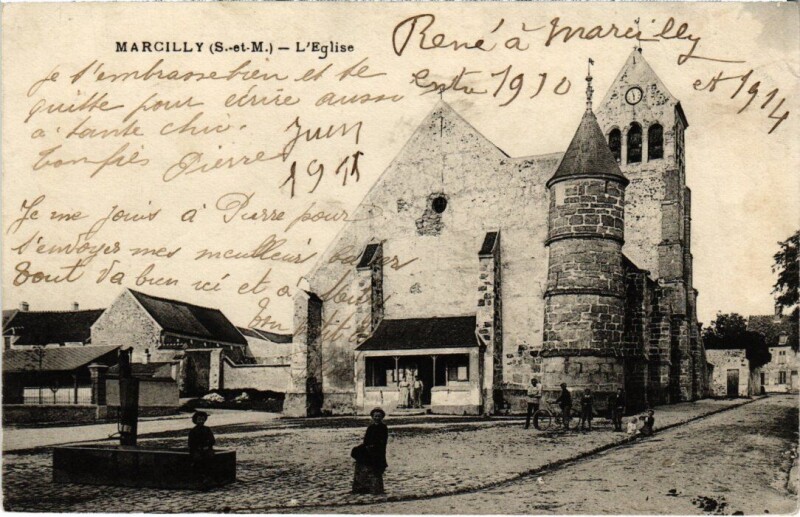 MARCILLY (S.-et-M.) — L'Eglise
René à Marcilly
entre 1910 et 1914
Je t'embrasse bien et te
quitte pour écrire aussi
a tante chic.
Juin
1911
Ton frès Pierre
Je me joins à Pierre pour
t'envoyer mes meilleurs
Tout va bien ici et a
Ton